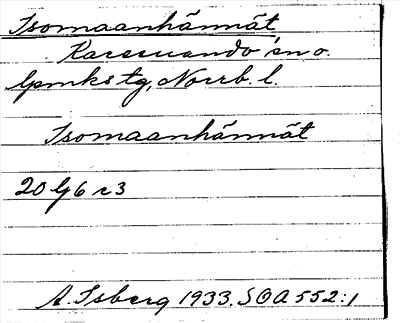 Isomaanhännät
Karesuando sn o.
lpmkstg, Norrb. l.
Isomaanhännät
20 G 6 c3
A. Isberg 1933. SOA 552:1